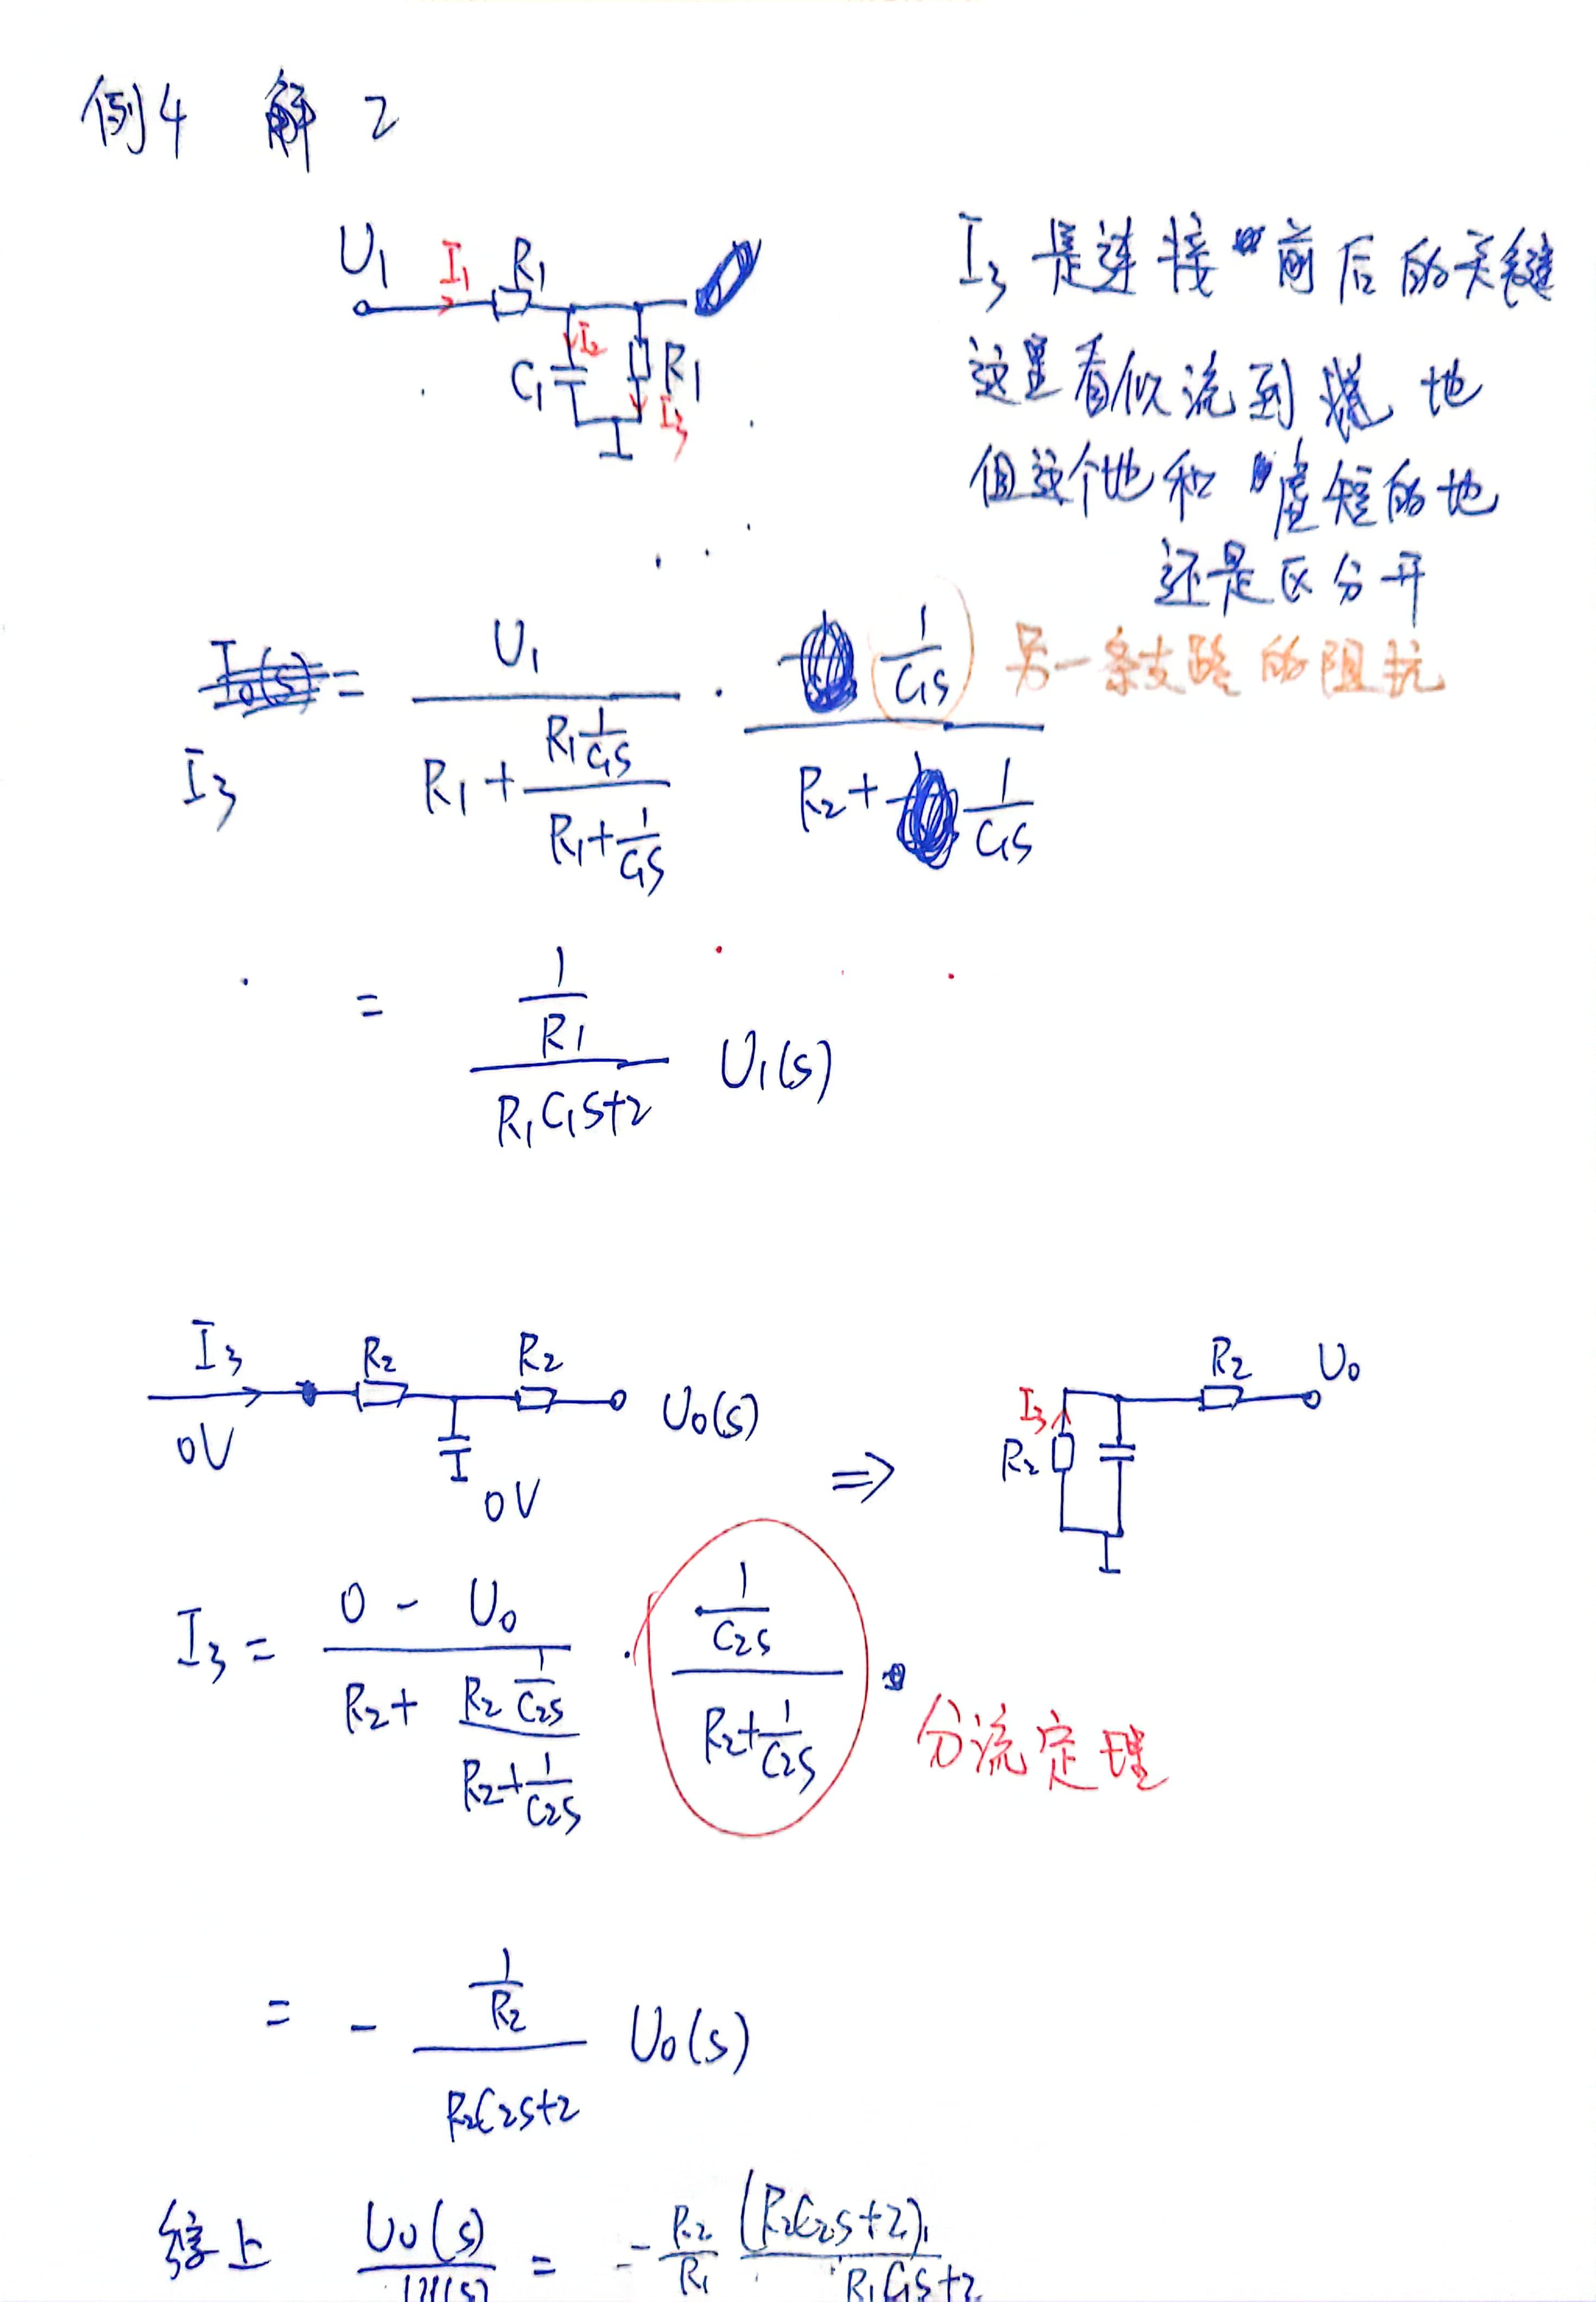 例4 解 2
U1 I1 R1
C1 I2 R1 I3
I3 是连接 前后的关键
这里看似流到 地
但这个地和 虚短的地
还是区分开
I3 = U1 / (R1 + (R1 1/C1S) / (R1 + 1/C1S)) · (1/C1S) / (R2 + 1/C1S) 另一条支路的阻抗
= (1/R1) / (R1C1S+2) U1(s)
I3 R2 R2 U0(s)
0V 0V
⇒
R2 U0
I3
R2
I3 = (0 - U0) / (R2 + (R2 1/C2S) / (R2 + 1/C2S)) · (1/C2S) / (R2 + 1/C2S)
分流定理
= - (1/R2) / (R2C2S+2) U0(s)
综上 U0(s)/U1(s) = - R2/R1 (R2C2S+2) / R1C1S+2